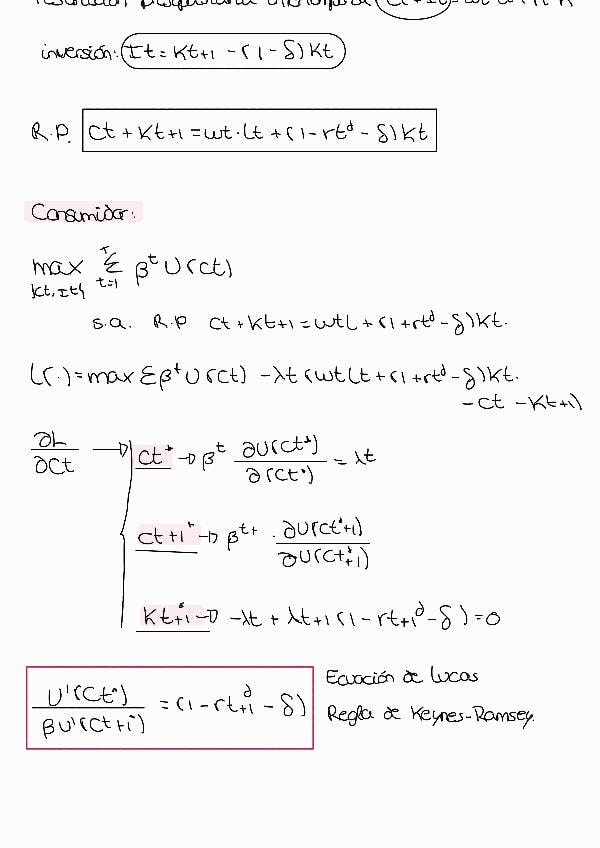 inversión: It = Kt+1 - (1 - δ) Kt
R.P. Ct + Kt+1 = wt · Lt + (1 - rt^d - δ) Kt
Consumidor:
max Σ β^t U(Ct)
{Ct, It} t=1
s.a. R.P Ct + Kt+1 = wt L + (1 + rt^d - δ) Kt.
L(·) = max Σ β^t U(Ct) - λt (wt Lt + (1 + rt^d - δ) Kt.
- Ct - Kt+1)
∂L/∂Ct → Ct* → β^t ∂U(Ct*)/∂(Ct*) = λt
Ct+1* → β^t+ · ∂U(Ct*+1)/∂U(Ct*+1)
Kt+1* → -λt + λt+1 (1 - rt+1^d - δ) = 0
U'(Ct*)/βU'(Ct+1*) = (1 - rt+1^d - δ)
Ecuación de Lucas
Regla de Keynes-Ramsey.